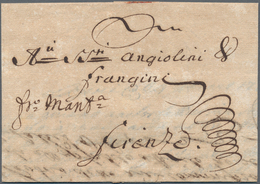 Angiolini &
frangini
fro. Manta.
firenze.